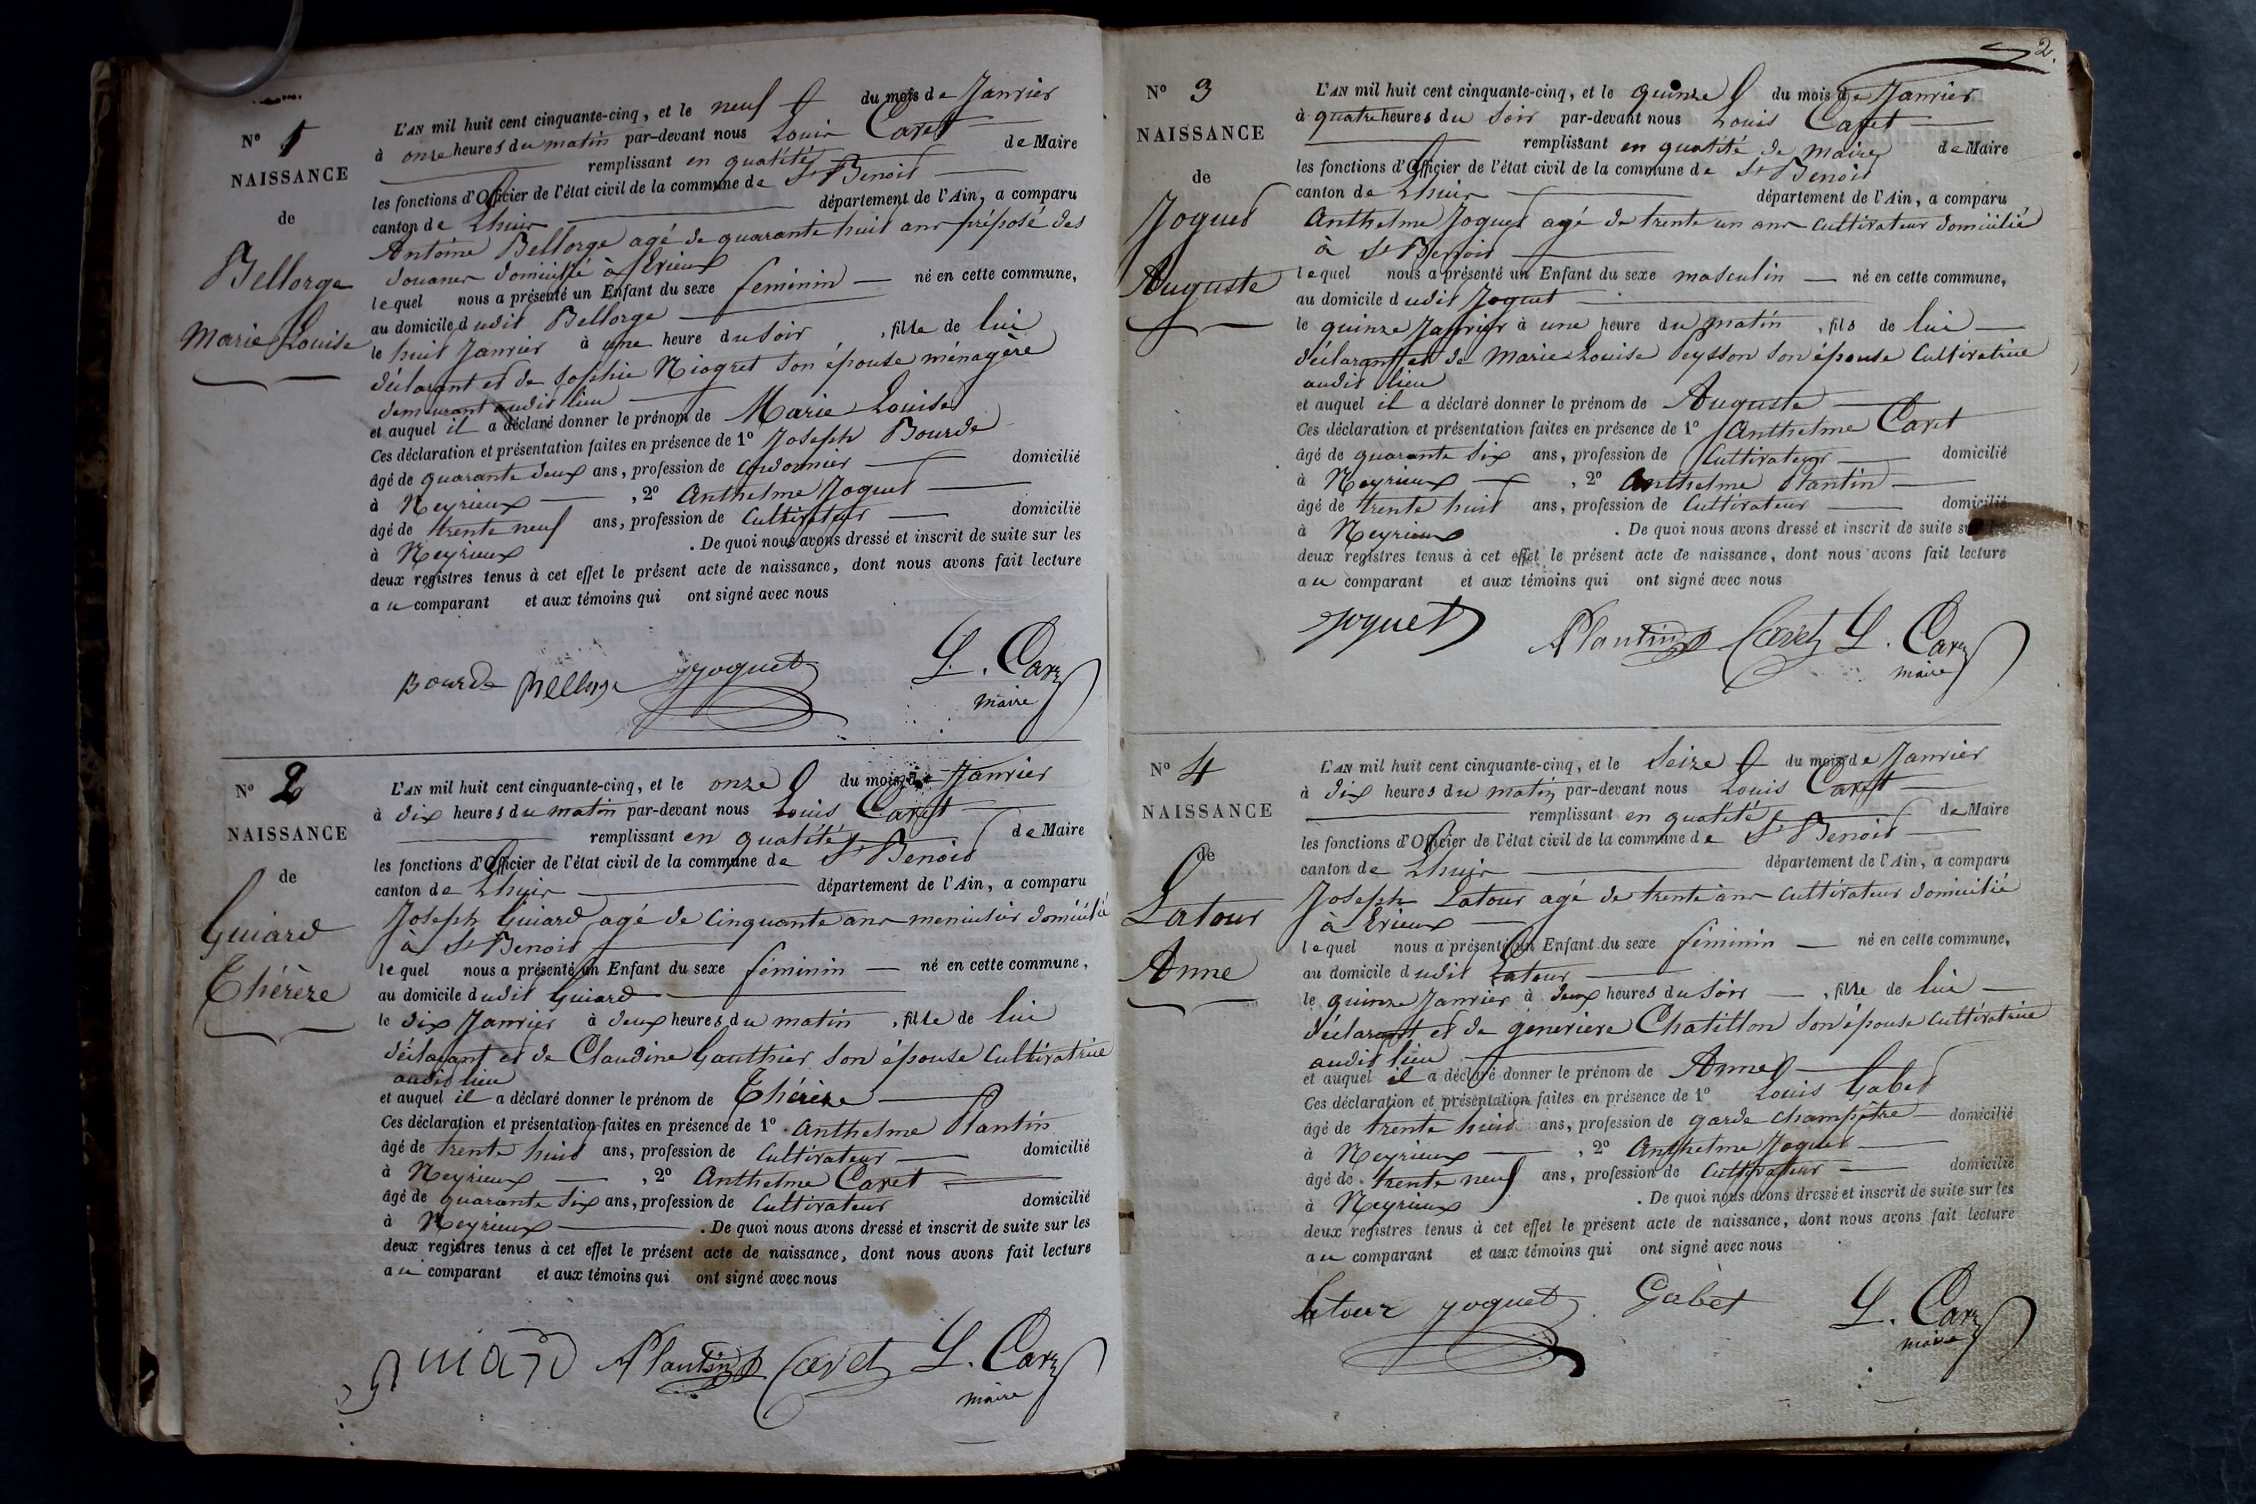 N° 1
NAISSANCE
de
Bellorge
Marie Louise
L'AN mil huit cent cinquante-cinq, et le neuf du mois de Janvier
à onze heures du matin par-devant nous Louis Cavet
remplissant en qualité de Maire
les fonctions d'Officier de l'état civil de la commune de St Benoit
canton de Lhuis département de l'Ain, a comparu
Antoine Bellorge agé de quarante huit ans préposé des
douanes domicilié à Evieux
lequel nous a présenté un Enfant du sexe féminin né en cette commune,
au domicile dudit Bellorge
le huit Janvier à une heure du soir, fille de lui
déclarant et de Sophie Niogret son épouse ménagère
demeurant audit lieu
et auquel il a déclaré donner le prénom de Marie Louise
Ces déclaration et présentation faites en présence de 1° Joseph Bourde
âgé de quarante deux ans, profession de cordonnier domicilié
à Neyrieux, 2° Anthelme Joguet
âgé de trente neuf ans, profession de Cultivateur domicilié
à Neyrieux. De quoi nous avons dressé et inscrit de suite sur les
deux registres tenus à cet effet le présent acte de naissance, dont nous avons fait lecture
au comparant et aux témoins qui ont signé avec nous
Bourde Bellorge Joguet L. Cavet
maire
N° 2
NAISSANCE
de
Guiard
Thérèze
L'AN mil huit cent cinquante-cinq, et le onze du mois de Janvier
à dix heures du matin par-devant nous Louis Cavet
remplissant en qualité de Maire
les fonctions d'Officier de l'état civil de la commune de St Benoit
canton de Lhuis département de l'Ain, a comparu
Joseph Guiard agé de cinquante ans menuisier domicilié
à St Benoit
lequel nous a présenté un Enfant du sexe féminin né en cette commune,
au domicile dudit Guiard
le dix Janvier à deux heures du matin, fille de lui
déclarant et de Claudine Gauthier son épouse Cultivatrice
audit lieu
et auquel il a déclaré donner le prénom de Thérèze
Ces déclaration et présentation faites en présence de 1° Anthelme Plantin
âgé de trente huit ans, profession de Cultivateur domicilié
à Neyrieux, 2° Anthelme Cavet
âgé de quarante six ans, profession de Cultivateur domicilié
à Neyrieux. De quoi nous avons dressé et inscrit de suite sur les
deux registres tenus à cet effet le présent acte de naissance, dont nous avons fait lecture
au comparant et aux témoins qui ont signé avec nous
guiard Plantin Cavet L. Cavet
maire
2.
N° 3
NAISSANCE
de
Joguet
Auguste
L'AN mil huit cent cinquante-cinq, et le quinze du mois de Janvier
à quatre heures du soir par-devant nous Louis Cavet
remplissant en qualité de maire de Maire
les fonctions d'Officier de l'état civil de la commune de St Benoit
canton de Lhuis département de l'Ain, a comparu
Anthelme Joguet agé de trente un ans cultivateur domicilié
à St Benoit
lequel nous a présenté un Enfant du sexe masculin né en cette commune,
au domicile dudit Joguet
le quinze Janvier à une heure du matin, fils de lui
déclarant et de Marie Louise Peysson son épouse Cultivatrice
audit lieu
et auquel il a déclaré donner le prénom de Auguste
Ces déclaration et présentation faites en présence de 1° Anthelme Cavet
âgé de quarante six ans, profession de Cultivateur domicilié
à Neyrieux, 2° Anthelme Plantin
âgé de trente huit ans, profession de Cultivateur domicilié
à Neyrieux. De quoi nous avons dressé et inscrit de suite
deux registres tenus à cet effet le présent acte de naissance, dont nous avons fait lecture
au comparant et aux témoins qui ont signé avec nous
Joguet Plantin Cavet L. Cavet
maire
N° 4
NAISSANCE
de
Latour
Anne
L'AN mil huit cent cinquante-cinq, et le seize du mois de Janvier
à dix heures du matin par-devant nous Louis Cavet
remplissant en qualité de Maire
les fonctions d'Officier de l'état civil de la commune de St Benoit
canton de Lhuis département de l'Ain, a comparu
Joseph Latour agé de trente ans cultivateur domicilié
à Evieux
lequel nous a présenté un Enfant du sexe féminin né en cette commune,
au domicile dudit Latour
le quinze Janvier à deux heures du soir, fille de lui
déclarant et de genevieve Chatillon son épouse cultivatrice
audit lieu
et auquel il a déclaré donner le prénom de Anne
Ces déclaration et présentation faites en présence de 1° Louis Gabet
âgé de trente huit ans, profession de garde champêtre domicilié
à Neyrieux, 2° Anthelme Joguet
âgé de trente neuf ans, profession de Cultivateur domicilié
à Neyrieux. De quoi nous avons dressé et inscrit de suite sur les
deux registres tenus à cet effet le présent acte de naissance, dont nous avons fait lecture
au comparant et aux témoins qui ont signé avec nous
Latour Joguet Gabet L. Cavet
maire